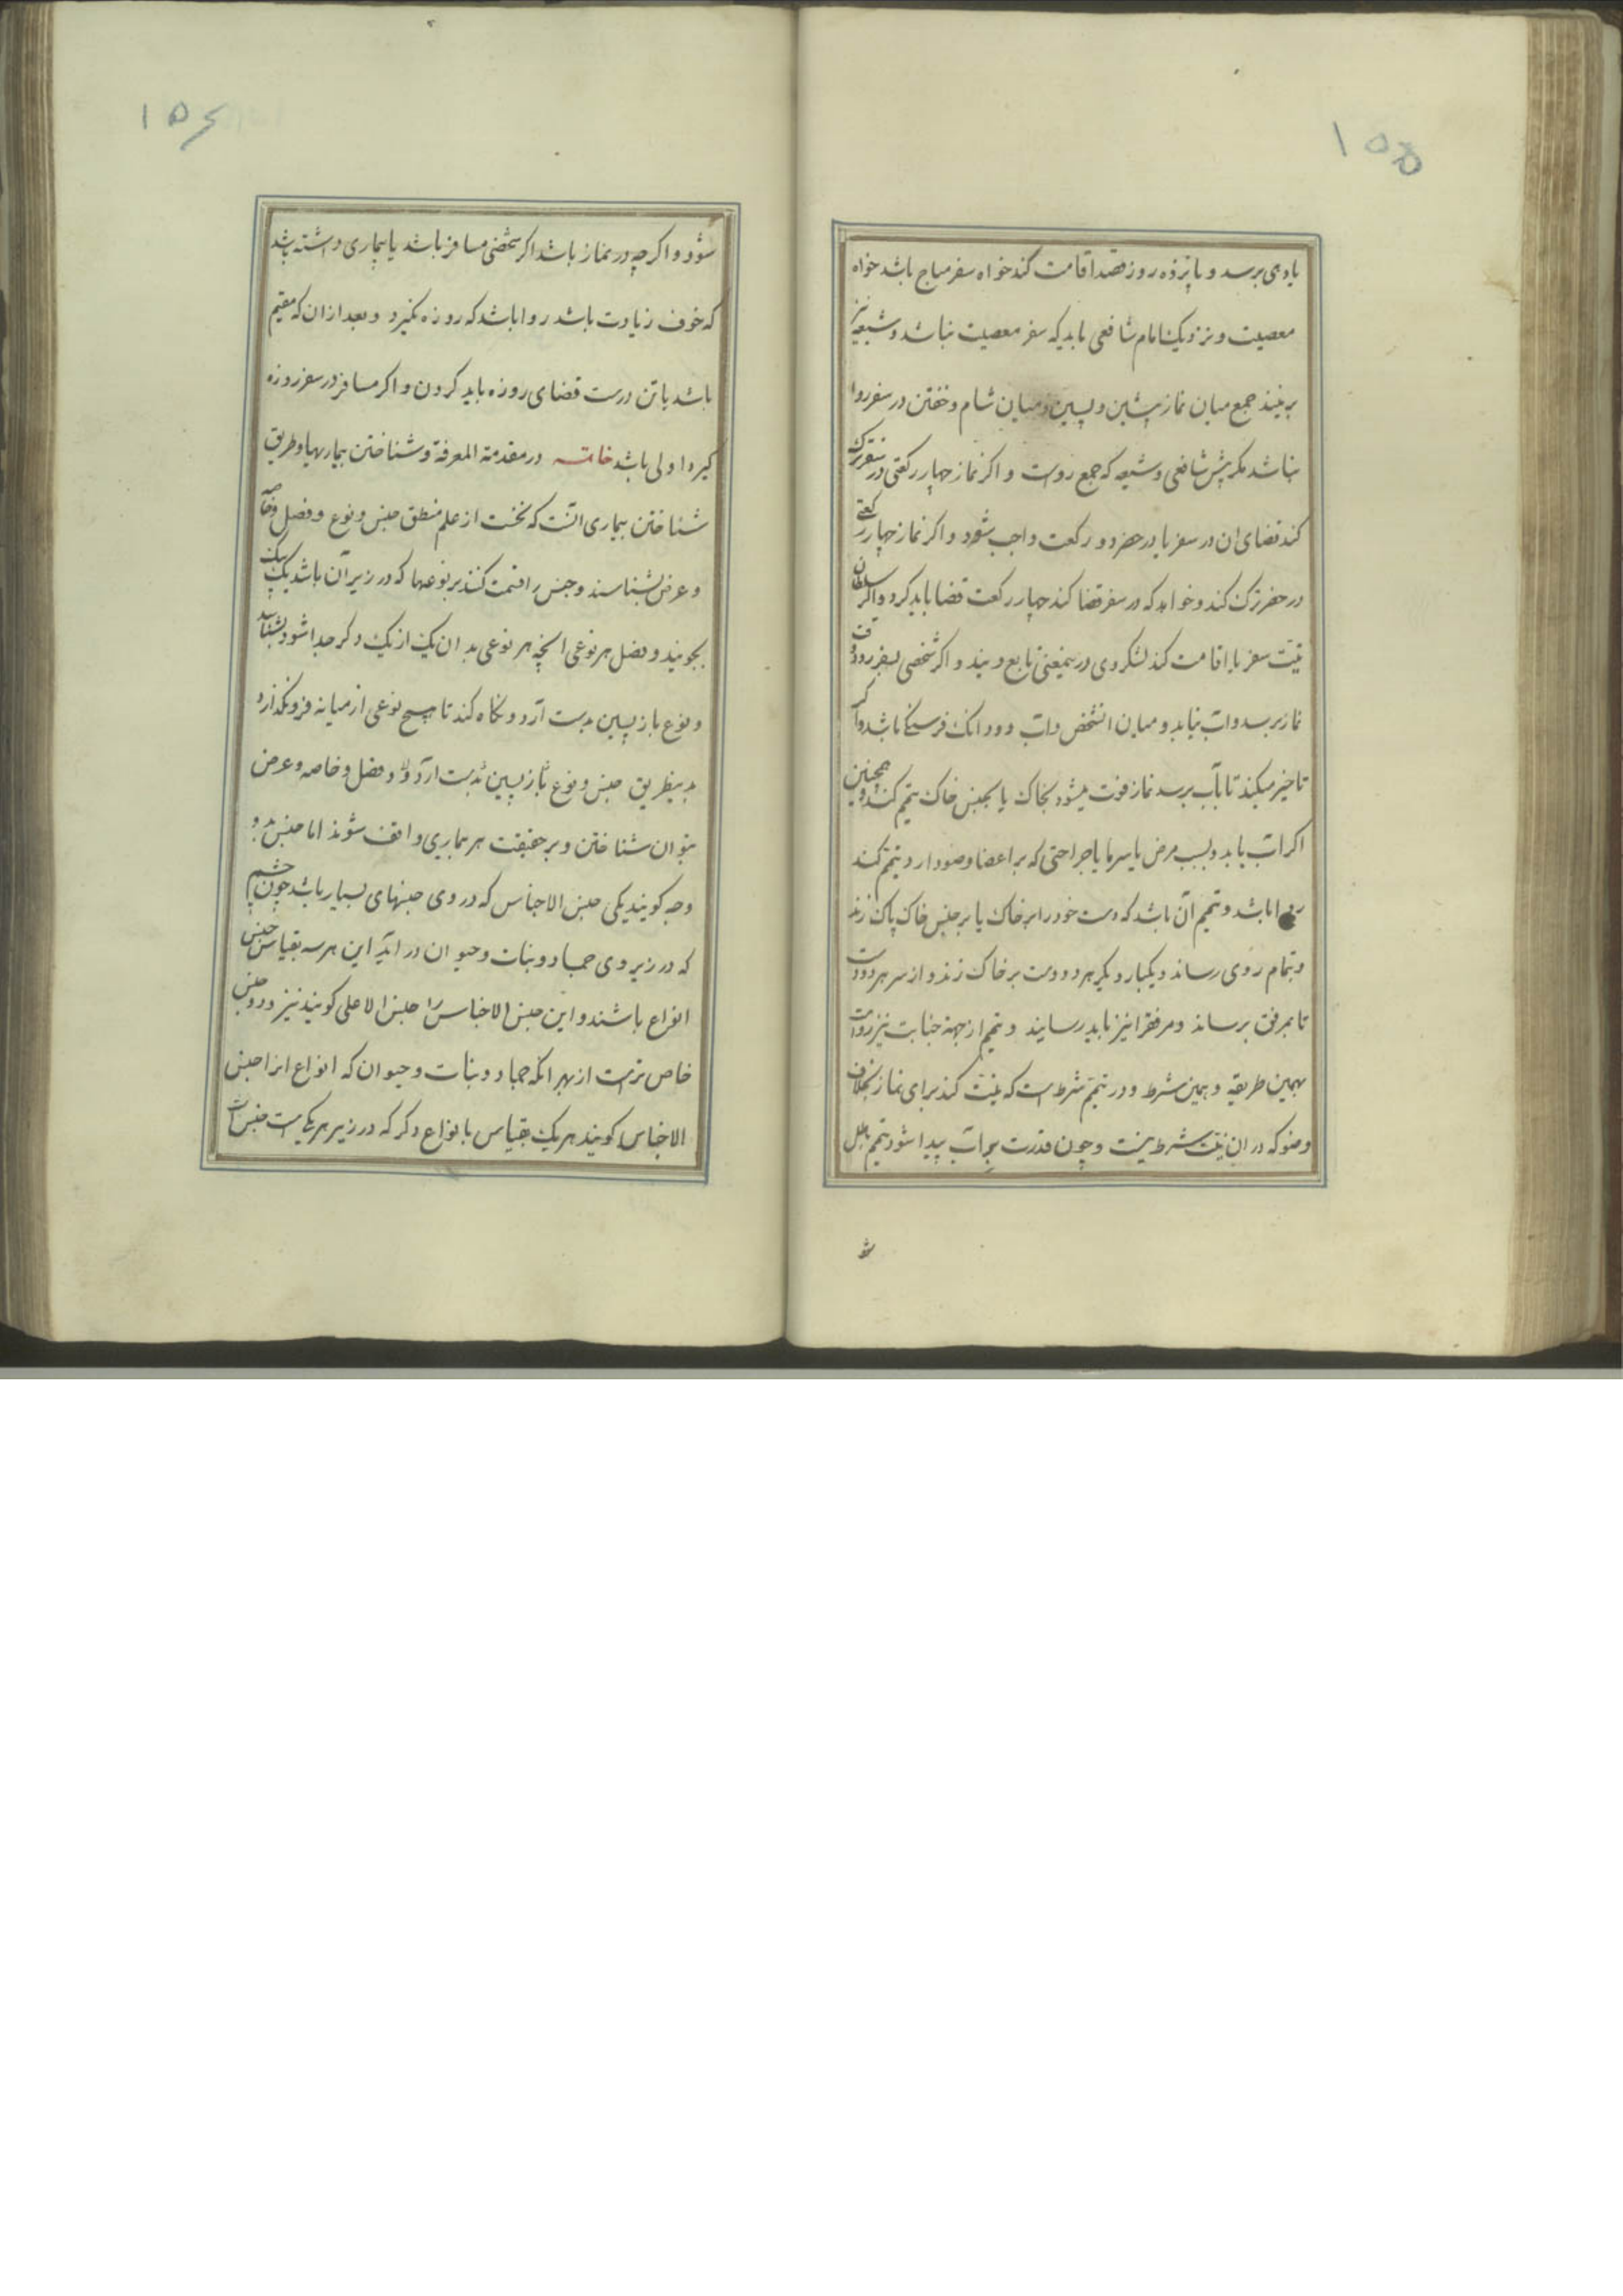 ۱۵۵
یا دهی برسد و پانزده روز قصد اقامت کند خواه سفر مباح باشد خواه
معصیت و نزدیک امام شافعی باید که سفر معصیت نباشد و شیعه نیز
برینند جمع میان نماز پیشین و پسین و میان شام و خفتن در سفر روا
نباشد مکر پیش شافعی و شیعه که جمع رواست و اکر نماز چهار رکعتی در سفر ترک
کند قضای ان در سفر یا در حضر دو رکعت واجب شود و اکر نماز چهار رکعتی
در حضر ترک کند و خواهد که در سفر قضا کند چهار رکعت قضا باید کرد و اکر سلطان
نیت سفر یا اقامت کند لشکر وی درینمعنی تابع ویند و اکر شخصی بسفر رود و وقت
نماز برسد و اب نیابد و میان انشخص و اب دو دانک فرسنکی باشد و اکر
تاخیر میکند تا بآب برسد نماز فوت میشود بخاک یا بجنس خاک تیمم کند و همچنین
اکر اب یابد و بسبب مرض یا سرما یا جراحتی که بر اعضا وضو دارد تیمم کند
روا باشد و تیمم آن باشد که دست خود را بر خاک یا بر جنس خاک پاک زند
و بتمام روی رساند و یکبار دیکر هر دو دست بر خاک زند و از سر هر دو دست
تا بمرفق برساند و مرفق را نیز باید رسانید و تیمم از جهة جنابت نیز رواست
بهمین طریقه و بهمین شرط و در تیمم شرط است که نیت کند برای نماز بخلاف
وضو که در ان نیت شرط نیست و چون قدرت بر اب پیدا شود تیمم باطل
شو
۱۵۶
شود و اکرچه در نماز باشد اکر شخصی مسافر باشد یا بیماری داشته باشد
که خوف زیادت باشد روا باشد که روزه نکیرد و بعد از ان که مقیم
باشد یا تن درست قضای روزه باید کردن و اکر مسافر در سفر روزه
کیرد اولی باشد خاتمه در مقدمة المعرفة و شناختن بیماریها و طریق
شناختن بیماری انست که نخست از علم منطق جنس و نوع و فصل و خاصه
و عرض بشناسند و جنس را قسمت کنند بر نوعها که در زیر آن باشد یک یک
بجویند و فصل هر نوعی انچه هر نوعی بدان یک از یک دکر جدا شود بشناسند
و نوع باز پسین بدست آرد و نکاه کند تا هیچ نوعی از میانه فرونکذارد
بدینطریق جنس و نوع باز پسین بدست ارد و فصل و خاصه و عرض
بتوان شناختن و بر حقیقت هر بیماری واقف شوند اما جنس بدو
وجه کویند یکی جنس الاجناس که در وی جنسهای بسیار باشد چون جسم
که در زیر وی جماد و نبات و حیوان در اید این هر سه بقیاس جنس
انواع باشند و این جنس الاجناس را جنس الاعلی کویند نیز و دو جنس
خاص ترست از بهر انکه جماد و نبات و حیوان که انواع انرا جنس
الاجناس کویند هر یک بقیاس با نواع دکر که در زیر هر یکیست جنس است